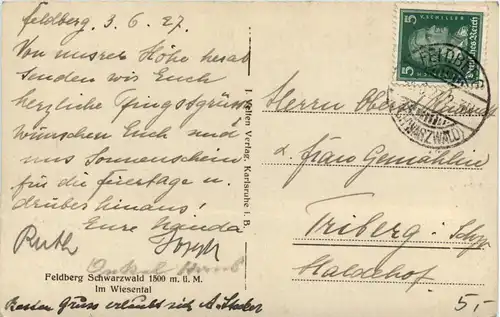 Feldberg, 3.6.27.
Von unsrer Höhe herab
senden wir Euch
herzliche Pfingstgrüsse
wünschen Euch und
uns Sonnenschein
für die Feiertage u.
drüber hinaus!
Eure
Ruth
Onkel
Feldberg Schwarzwald 1500 m. ü. M.
Im Wiesental
Besten Gruss erlaubt sich A.
J. Velten Verlag, Karlsruhe i. B.
F. v. SCHILLER
5 5
Deutsches Reich
FELDBERG
(SCHWARZWALD)
Herrn
u. Frau Gemahlin
Triberg
Haldehof
5,-